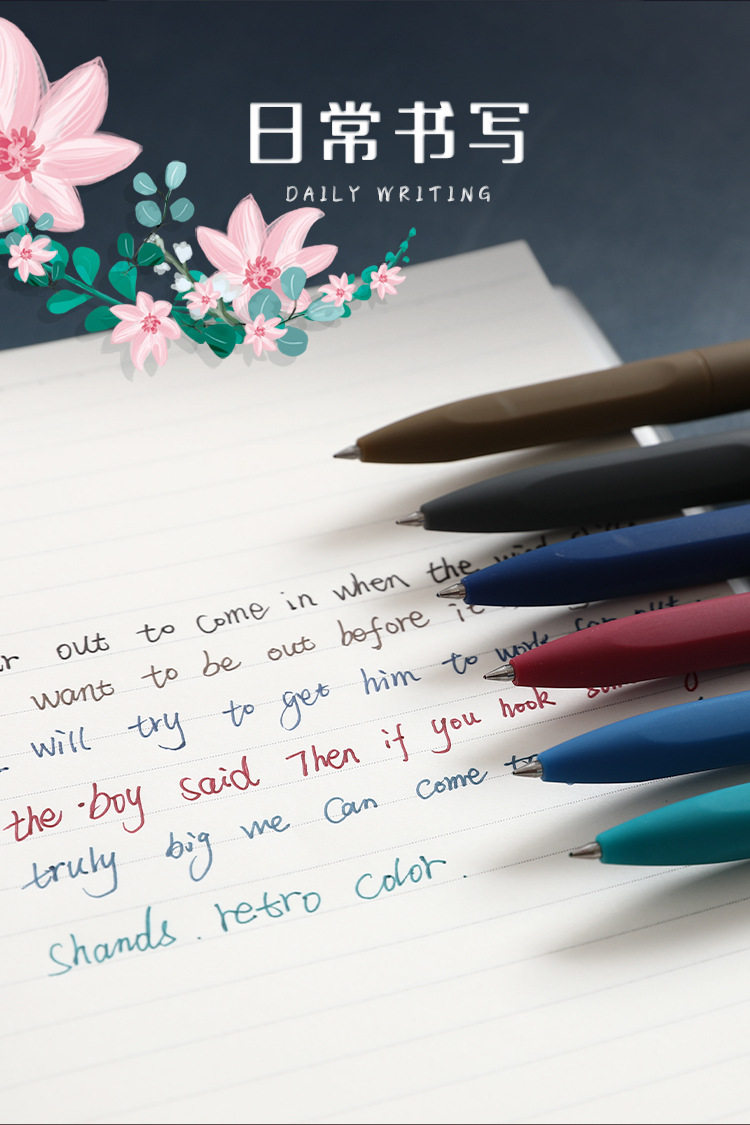 日常书写
DAILY WRITING
out to come in when the
want to be out before it
will try to get him to work for
the boy said Then if you hook
truly big we can come
Shands. retro color.